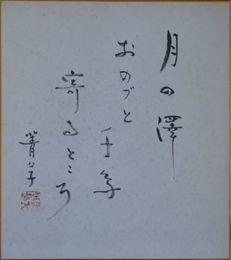 月の澤
おのづと千鳥
寄るところ